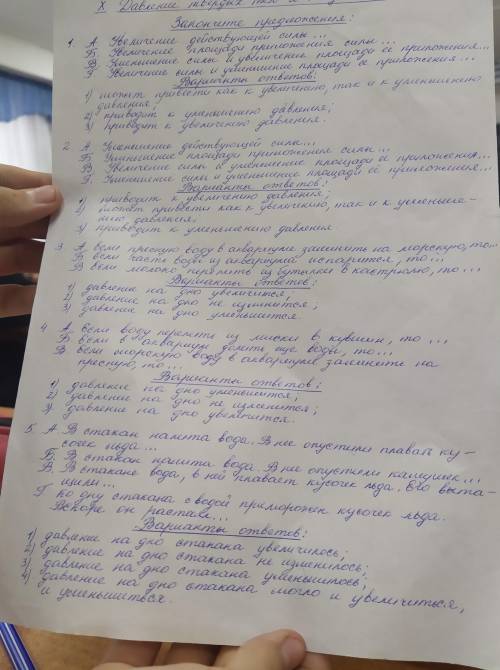 X Давление твердых тел и
Закончите предложения:
1. А Увеличение действующей силы...
Б Увеличение площади приложения силы...
В Уменьшение силы и увеличение площади её приложения...
Г Увеличение силы и уменьшение площади её приложения...
Варианты ответов:
1) может привести как к увеличению, так и к уменьшению
давления;
2) приводит к уменьшению давления;
3) приводит к увеличению давления.
2. А Уменьшение действующей силы...
Б Уменьшение площади приложения силы...
В Увеличение силы и уменьшение площади её приложения...
Г Уменьшение силы и уменьшение площади её приложения...
Варианты ответов:
1) приводит к увеличению давления;
2) может привести как к увеличению, так и к уменьше-
нию, давления.
3) приводит к уменьшению давления
3. А Если пресную воду в аквариуме заменить на морскую, то...
Б Если часть воды из аквариума испарится, то...
В Если молоко перелить из бутылки в кастрюлю, то...
Варианты ответов:
1) давление на дно увеличится;
2) давление на дно не изменится;
3) давление на дно уменьшится.
4. А Если воду перелить из миски в кувшин, то...
Б Если в аквариум долить еще воды, то...
В Если морскую воду в аквариуме заменить на
пресную, то...
Варианты ответов:
1) давление на дно уменьшится;
2) давление на дно не изменится;
3) давление на дно увеличится.
5. А В стакан налита вода. В нее опустили плавать ку-
сочек льда...
Б В стакан налита вода. В нее опустили камушек...
В В стакане вода, в ней плавает кусочек льда. Его выта-
щили...
Г Ко дну стакана с водой приморожен кусочек льда.
Вскоре он растаял...
Варианты ответов:
1) давление на дно стакана увеличилось;
2) давление на дно стакана не изменилось;
3) давление на дно стакана уменьшилось;
4) давление на дно стакана могло и увеличиться,
и уменьшиться.